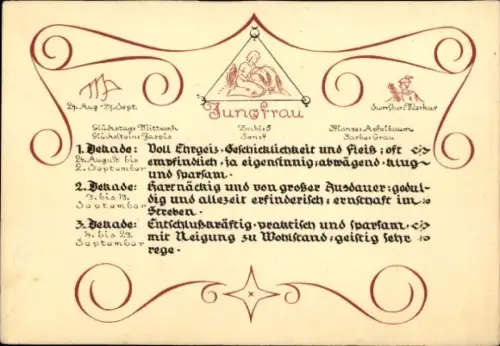 24. Aug - 23. Sept.
Jungfrau
Herrscher: Merkur
Glückstag: Mittwoch
Glückstein: Jaspis
Zahl: 5
Pflanze: Apfelbaum
Farbe: Grau
1. Dekade: Voll Ehrgeiz · Geschicklichkeit und Fleiß; oft
24. August bis empfindlich, ja eigensinnig; abwägend · klug
2. September und sparsam.
2. Dekade: Hartnäckig und von großer Ausdauer; gedul-
3. bis 13. dig und allezeit erfinderisch; ernsthaft im
September Streben.
3. Dekade: Entschlußkräftig · praktisch und sparsam
14. bis 23. mit Neigung zu Wohlstand; geistig sehr
September rege.